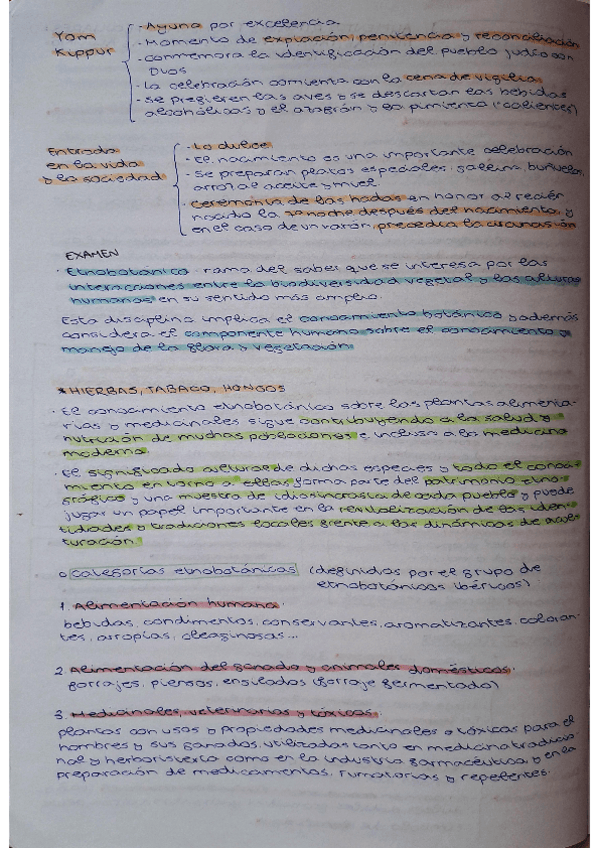 Yom
Kippur
- Ayuno por excelencia
- Momento de expiación, penitencia y reconciliación
- conmemora la identificación del pueblo judío con
Dios
- La celebración comienza con la cena de vigilia
- se prefieren las aves y se descartan las bebidas
alcohólicas y el azafrán y la pimienta ("calientes")
Entrada
en la vida
y la sociedad
- Lo dulce
- El nacimiento es una importante celebración
- se preparan platos especiales: gallina, buñuelos,
arroz al aceite y miel
- ceremonia de las hadas en honor al recién
nacido la 7ª noche después del nacimiento, y
en el caso de un varón, precedía la circuncisión
EXAMEN
· Etnobotánica - rama del saber que se interesa por las
interacciones entre la biodiversidad vegetal y las culturas
humanas en su sentido más amplio.
Esta disciplina implica el conocimiento botánico y además
considera el componente humano sobre el conocimiento y
manejo de la flora y vegetación.
* HIERBAS, TABACO, HONGOS
· El conocimiento etnobotánico sobre las plantas alimenta-
rias y medicinales sigue contribuyendo a la salud y
nutrición de muchas poblaciones e incluso a la medicina
moderna.
· El significado cultural de dichas especies y todo el conoci-
miento en torno a ellas forma parte del patrimonio etno-
gráfico y una muestra de idiosincrasia de cada pueblo y puede
jugar un papel importante en la revitalización de las iden-
tidades y tradiciones locales frente a las dinámicas de acul-
turación.
o Categorías etnobotánicas (definidas por el grupo de
etnobotánicos ibéricos)
1. Alimentación humana.
bebidas, condimentos, conservantes, aromatizantes, coloran-
tes, arropías, oleaginosas...
2. Alimentación del ganado y animales domésticos.
forrajes, piensos, ensilados (forraje fermentado)
3. Medicinales, veterinarias y tóxicas.
plantas con usos o propiedades medicinales o tóxicas para el
hombres y sus ganados, utilizadas tanto en medicina tradicio-
nal y herboristería como en la industria farmacéutica, y en la
preparación de medicamentos, fumatorias y repelentes.